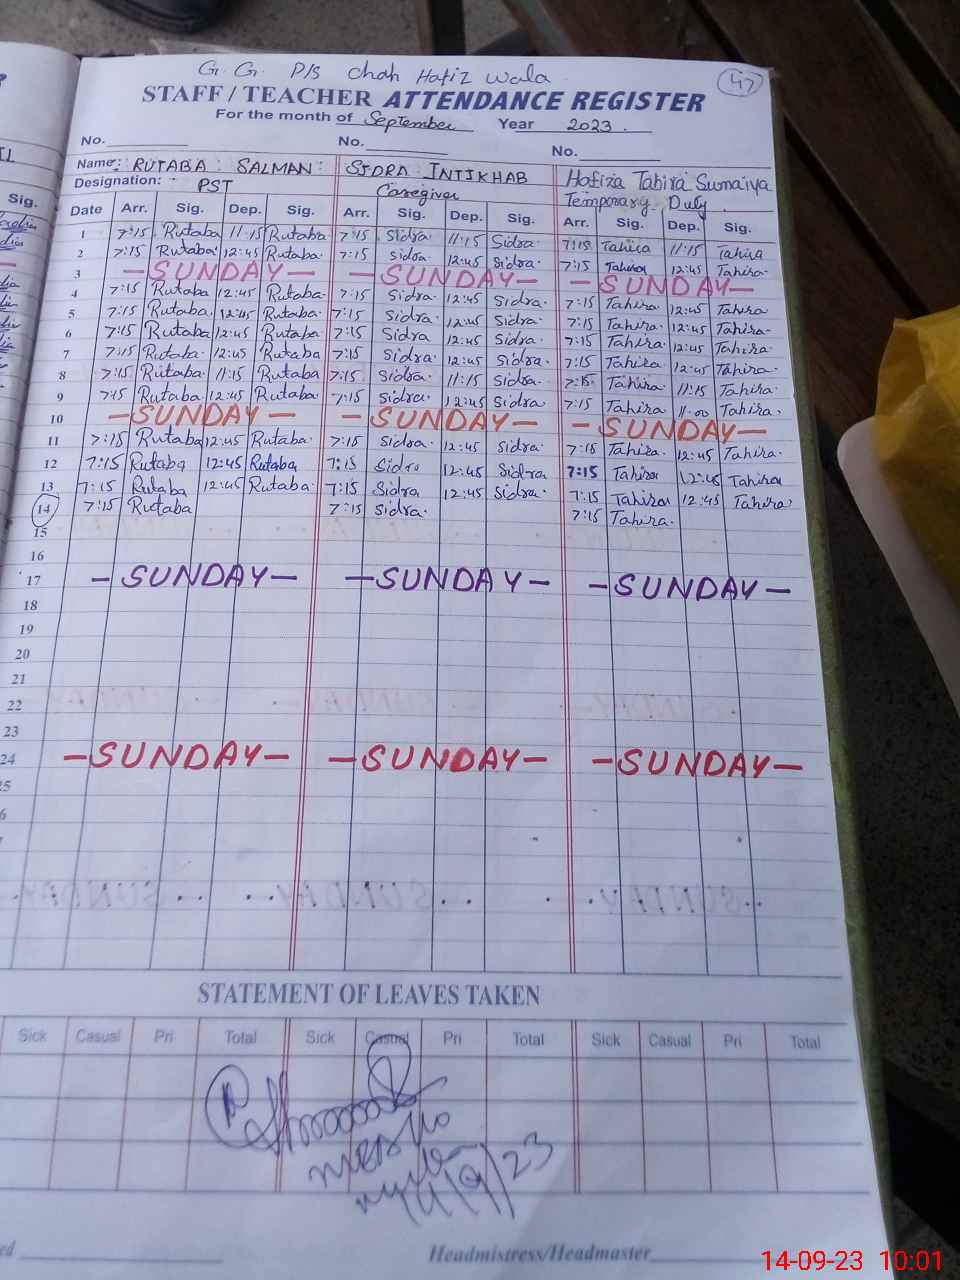 G. G. P/S Chah Hafiz Wala 47
STAFF / TEACHER ATTENDANCE REGISTER
For the month of September Year 2023.
No. No. No.
Name: RUTABA SALMAN SIDRA INTIKHAB Hafiza Tahira Sumaiya
Designation: PST Caregiver Temporary Duty
Sig. Date Arr. Sig. Dep. Sig. Arr. Sig. Dep. Sig. Arr. Sig. Dep. Sig.
1 7:15 Rutaba 11:15 Rutaba 7:15 Sidra 11:15 Sidra 7:15 Tahira 11:15 Tahira
2 7:15 Rutaba 12:45 Rutaba 7:15 Sidra 12:45 Sidra 7:15 Tahira 12:45 Tahira
3 -SUNDAY- -SUNDAY- -SUNDAY-
4 7:15 Rutaba 12:45 Rutaba 7:15 Sidra 12:45 Sidra 7:15 Tahira 12:45 Tahira
5 7:15 Rutaba 12:45 Rutaba 7:15 Sidra 12:45 Sidra 7:15 Tahira 12:45 Tahira
6 7:15 Rutaba 12:45 Rutaba 7:15 Sidra 12:45 Sidra 7:15 Tahira 12:45 Tahira
7 7:15 Rutaba 12:45 Rutaba 7:15 Sidra 12:45 Sidra 7:15 Tahira 12:45 Tahira
8 7:15 Rutaba 11:15 Rutaba 7:15 Sidra 11:15 Sidra 7:15 Tahira 11:15 Tahira
9 7:15 Rutaba 12:45 Rutaba 7:15 Sidra 12:45 Sidra 7:15 Tahira 11:00 Tahira
10 -SUNDAY- -SUNDAY- -SUNDAY-
11 7:15 Rutaba 12:45 Rutaba 7:15 Sidra 12:45 Sidra 7:15 Tahira 12:45 Tahira
12 7:15 Rutaba 12:45 Rutaba 7:15 Sidra 12:45 Sidra 7:15 Tahira 12:45 Tahira
13 7:15 Rutaba 12:45 Rutaba 7:15 Sidra 12:45 Sidra 7:15 Tahira 12:45 Tahira
14 7:15 Rutaba 7:15 Sidra 7:15 Tahira
15
16
17 -SUNDAY- -SUNDAY- -SUNDAY-
18
19
20
21
22
23
24 -SUNDAY- -SUNDAY- -SUNDAY-
STATEMENT OF LEAVES TAKEN
Sick Casual Pri Total Sick Casual Pri Total Sick Casual Pri Total
Headmistress/Headmaster
14-09-23 10:01